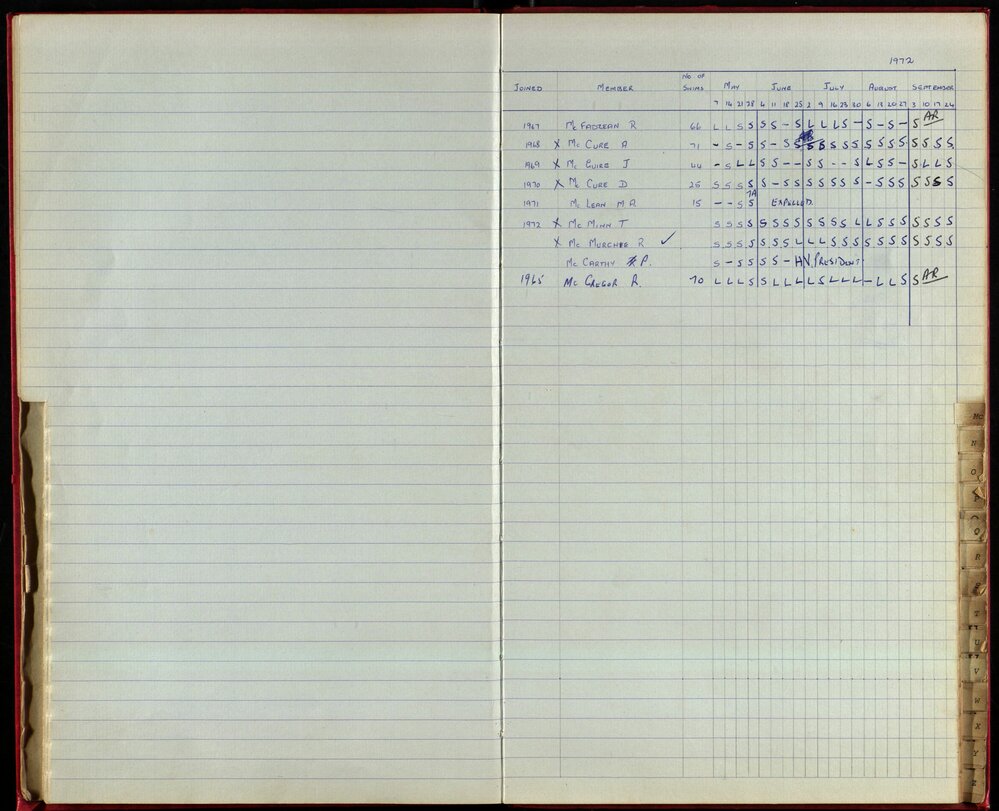 1972
JOINED MEMBER NO OF SWIMS MAY JUNE JULY AUGUST SEPTEMBER
7 14 21 28 4 11 18 25 2 9 16 23 30 6 13 20 27 3 10 17 24
1967 Mc FADZEAN R 66 L L S S S S - S L L L S - S - S - S AR
1968 X Mc CURE A 71 - S - S S - S S S B S S S S S S S S S S S
1969 X Mc GUIRE J 44 - S L L S S - - S S - - S S L S S - S L L S
1970 X Mc CURE D 25 S S S S S - S S S S S S S - S S S S S S S
1971 Mc LEAN M R 15 - - S S EXPELLED.
1972 X Mc MINN T S S S S S S S S S S S S L L S S S S S S S
X Mc MURCHEE R ✓ S S S S S S S L L L S S S S S S S S S S S
Mc CARTHY P. S - S S S S - H V. PRESIDENT
1965 Mc GREGOR R. 70 L L L S S L L L L S L L L - L L S S AR
Mc
N
O
Q
R
T
U
V
W
X
Y
Z